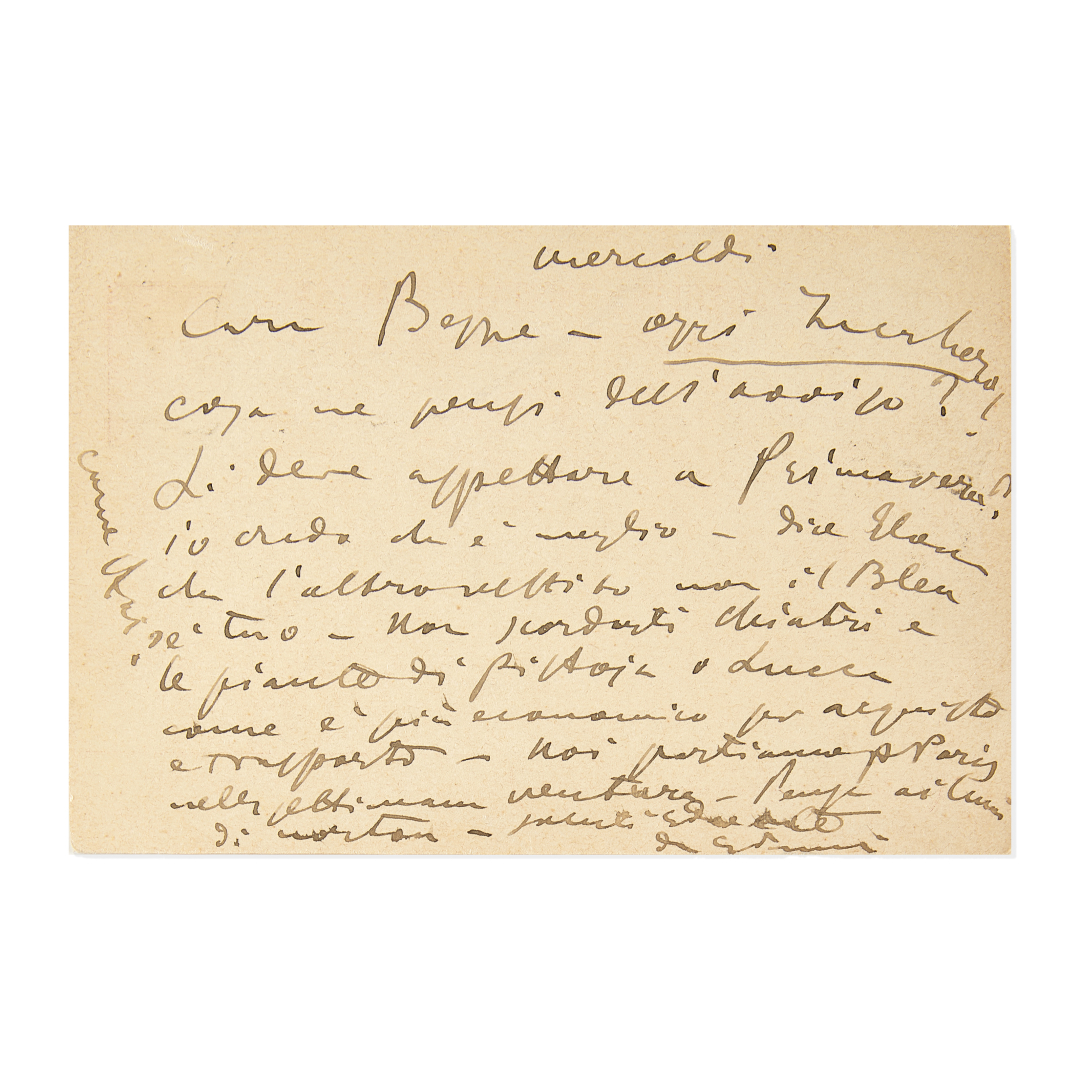 mercoldì
Caro Beppe – oggi
cosa ne pensi dell'avviso?
Si deve aspettare a Primavera?
io credo che è meglio – dice
che l'altro vestito non il Bleu
è tuo – Non scordarti Chiatri e
le piante di Pistoja o Lucca
come è più economico per acquisto
e trasporto – Noi partiamo p Paris
nella settimana ventura – Pensa ai
di – saluti
da
come